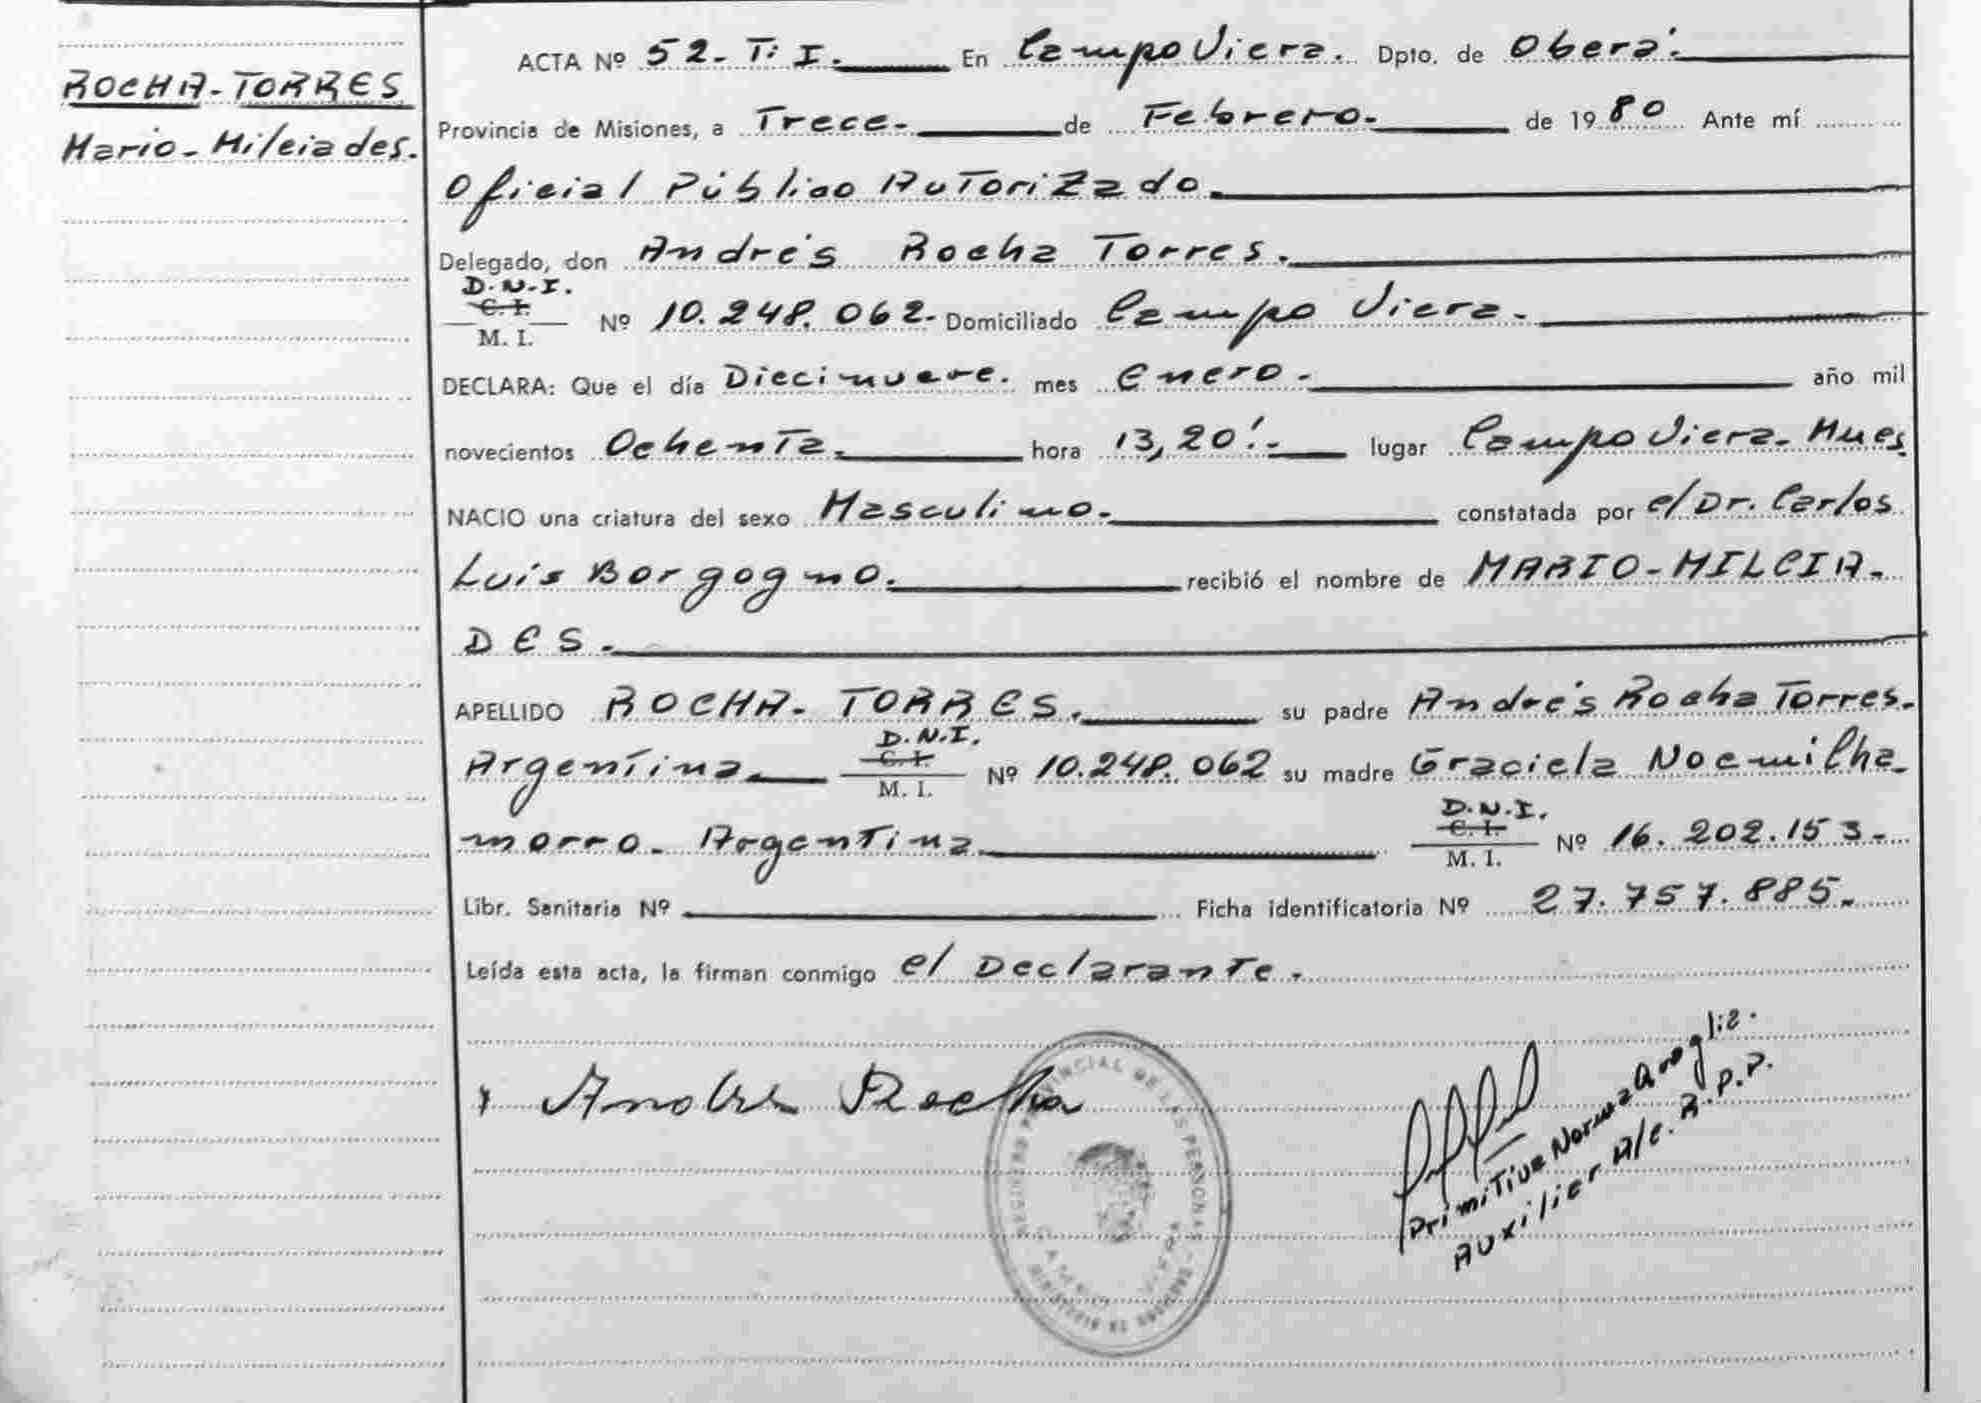 ROCHA-TORRES
Mario-Milciades.
ACTA Nº 52-T: I. En Campo Viera. Dpto. de Oberá.
Provincia de Misiones, a Trece.- de Febrero.- de 1980 Ante mí
Oficial Público Autorizado.
Delegado, don Andrés Rocha Torres.
D.N.I.
C. I.
M. I.
Nº 10.248.062.- Domiciliado Campo Viera.-
DECLARA: Que el día Diecinueve. mes Enero.- año mil
novecientos Ochenta. hora 13,20!- lugar Campo Viera-Mues
NACIO una criatura del sexo Masculino.- constatada por el Dr. Carlos
Luis Borgogno. recibió el nombre de MARIO-MILCIA-
DES.-
APELLIDO ROCHA-TORRES. su padre Andrés Rocha Torres.-
D.N.I.
Argentina C. I. Nº 10.248.062 su madre Graciela Noemi Cha-
M. I.
D.N.I.
morro. Argentina C. I. Nº 16.202.153.-
M. I.
Libr. Sanitaria Nº Ficha identificatoria Nº 27.757.885.-
Leída esta acta, la firman conmigo el Declarante.-
Andres Rocha
PROVINCIAL DE LAS PERSONAS
Primitiva Norma
Auxiliar A/c. R.P.P.